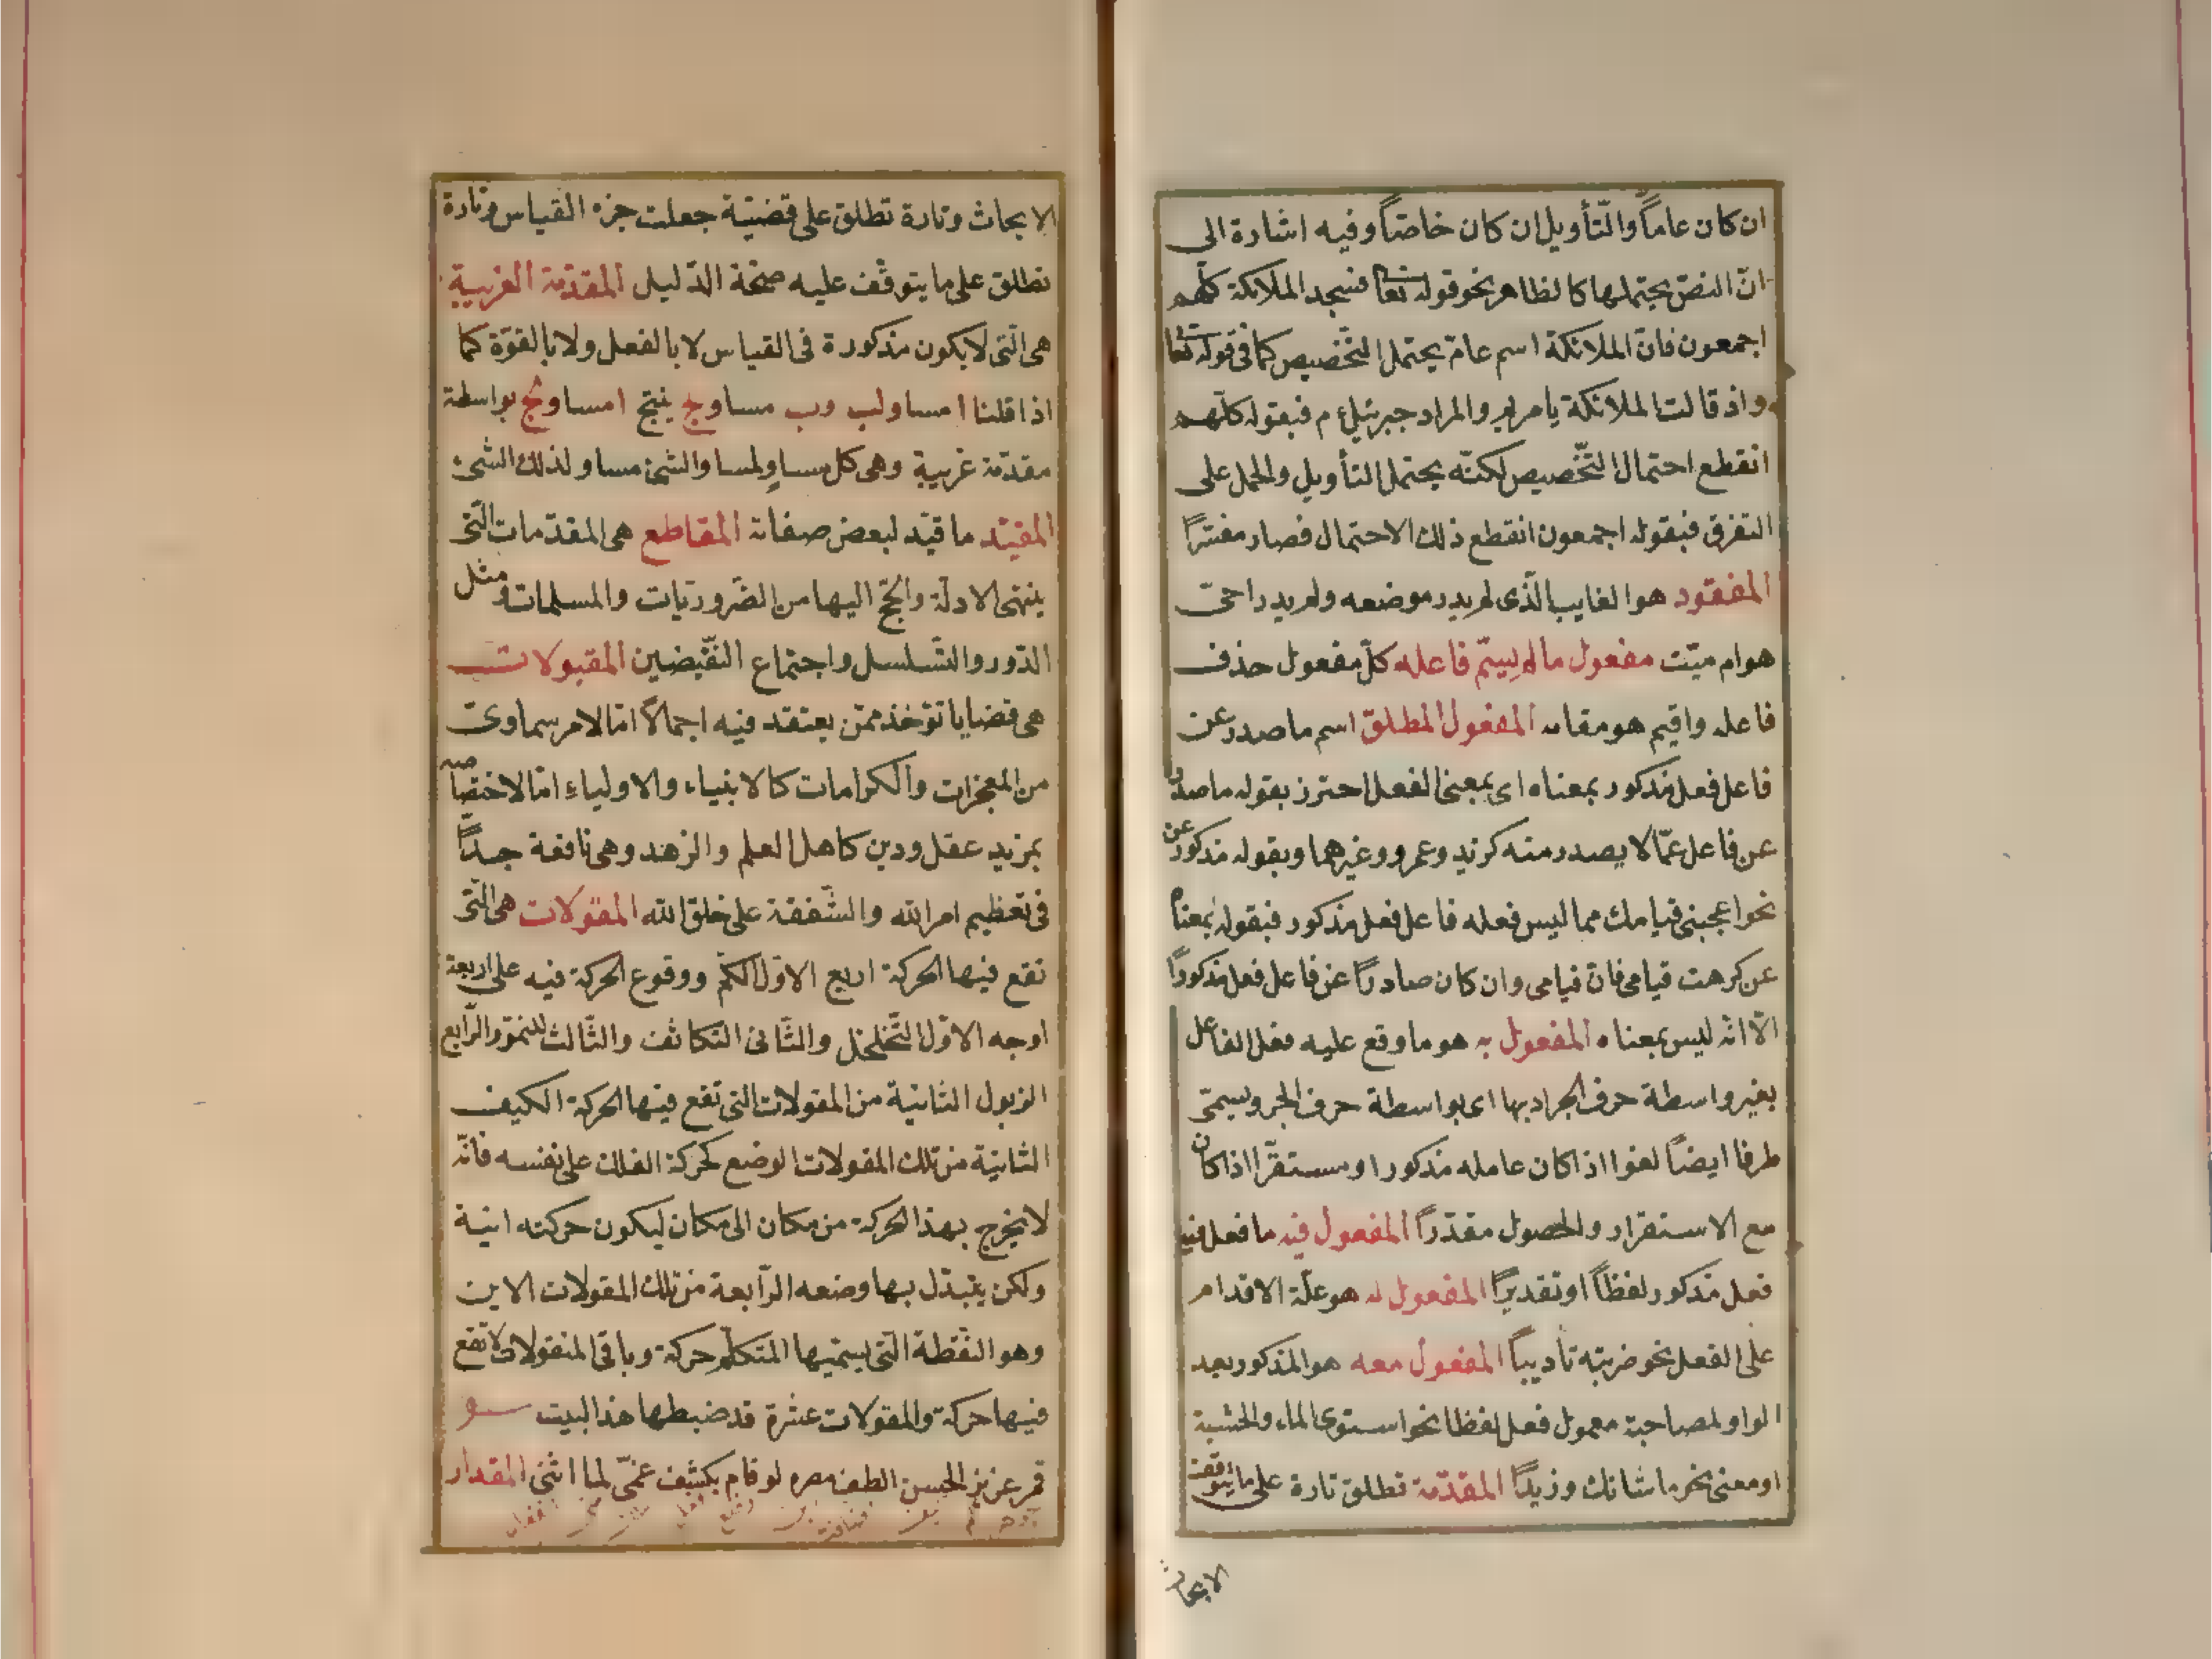 ان كان عاماً والتّأويل ان كان خاصّاً وفيه اشارة الى
انّ النصّ يحتملها كالظاهر نحو قوله تعا فسجد الملائكة كلّهم
اجمعون فانّ الملائكة اسم عامّ يحتمل التّخصيص كما فى قوله تعا
واذ قالت الملائكة يا مريم والمراد جبرئيل ع م فبقوله كلّهم
انقطع احتمال التّخصيص لكنّه يحتمل التأويل والحمل على
التفرق فبقوله اجمعون انقطع ذلك الاحتمال فصار مفسّراً
المفقود هو الغايب الّذى لم يدر موضعه ولم يدر احىّ
هو ام ميّت مفعول ما لم يسمّ فاعله كلّ مفعول حذف
فاعله واقيم هو مقامه المفعول المطلق اسم ما صدر عن
فاعل فعل مذكور بمعناه اى بمعنى الفعل احترز بقوله ما صدر
عن فاعل عمّا لا يصدر منه كزيد وعمرو وغيرهما وبقوله مذكور عن
نحو اعجبنى قيامك مما ليس فعله فاعل فعل مذكور فبقوله بمعناه
عن كرهت قيامى فانّ قيامى وان كان صادراً عن فاعل فعل مذكوراً
الّا انّه ليس بمعناه المفعول به هو ما وقع عليه فعل الفاعل
بغير واسطة حرف الجر اد بها اى بواسطة حرف الجر ويسمّى
ظرفا ايضاً لغوا اذا كان عامله مذكورا ومستقرّا اذا كان
مع الاستقرار والحصول مقدّراً المفعول فيه ما فعل فيه
فعل مذكور لفظاً او تقديراً المفعول له هو علّة الاقدام
على الفعل نحو ضربته تأديباً المفعول معه هو المذكور بعد
الواو لمصاحبة معمول فعل لفظا نحو استوى الماء والخشبة
او معنى نحو ما شانك وزيداً المقدّمة تطلق تارة على ما يتوقف
الابحاث
الابحاث وتارة تطلق على قضيّة جعلت جزء القياس وتارة
تطلق على ما يتوقّف عليه صحّة الدّليل المقدّمة الغريبة
هى الّتى لا يكون مذكورة فى القياس لا بالفعل ولا بالقوّة كما
اذا قلنا ا مساو لب وب مساو لج ينتج ا مساو لج بواسطة
مقدّمة غريبة وهى كل مساوٍ لمساو الشئ مساو لذلك الشئ
المقيّد ما قيّد لبعض صفاته المقاطع هى المقدّمات الّتى
ينتهى الادلّة والحجج اليها من الضّروريّات والمسلمات ومثل
الدّور والتّسلسل واجتماع النّقيضين المقبولات
هى قضايا تؤخذ ممّن يعتقد فيه اجمالاً امّا لامر سماوىّ
من المعجزات والكرامات كالانبياء والاولياء امّا لاختصاصه
بمزيد عقل ودين كاهل العلم والزهد وهى نافعة جدّاً
فى تعظيم امر الله والشّفقة على خلق الله المقولات هى الّتى
تقع فيها الحركة اربع الاوّل الكمّ ووقوع الحركة فيه على اربعة
اوجه الاوّل التّخلخل والثّانى التكاثف والثّالث للنموّ والرّابع
الزبول الثانية من المقولات التى تقع فيها الحركة الكيف
الثانية من تلك المقولات الوضع كحركة الفلك على نفسه فانّه
لا يخرج بهذا الحركة من مكان الى مكان ليكون حركته اينية
ولكن يتبدّل بها وضعه الرّابعة من تلك المقولات الاين
وهو النّقطة الّتى يسمّيها المتكلّم حركة وباقى المنقولات لا تقع
فيها حركة والمقولات عشرة قد ضبطها هذا البيت
قمر عزيز الحسن الطف مصره لو قام يكشف غمّى لما انثنى المقدار